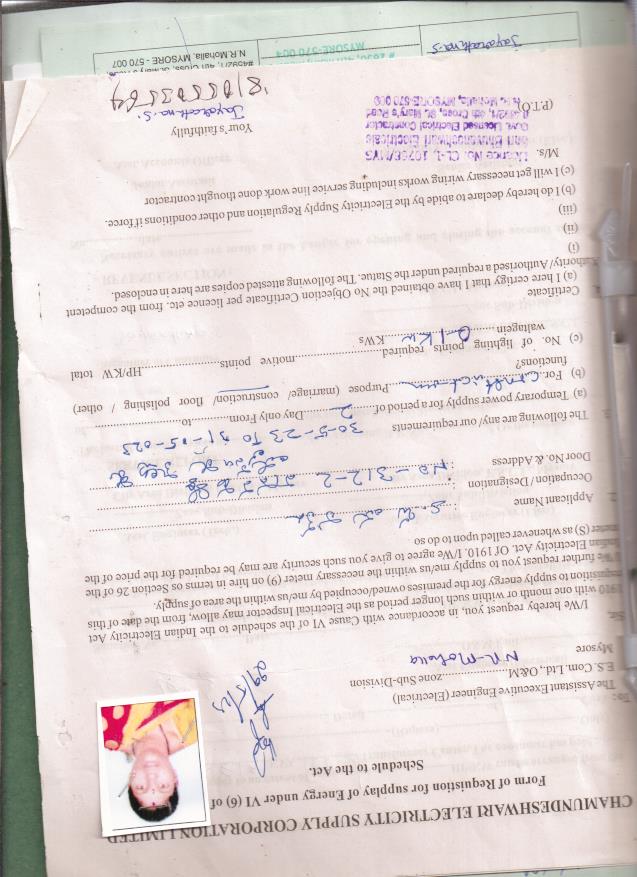 CHAMUNDESHWARI ELECTRICITY SUPPLY CORPORATION LIMITED
Form of Requisition of for supply of Energy of under VI (6) of
Schedule to the Act.
The Assistant Executive Engineer (Electrical)
E.S. Com. Ltd., O&M..................zone Sub-Division
Mysore N.R-Mohalla
29/5/23
Sir,
I/We hereby request you, in accordance with Cause VI of the schedule to the Indian Electricity Act
1910 with one month or within such longer period as the Electrical Inspector may allow, from the date of this
requisition to supply energy for the premises owned/occupied by me/us within the area of supply.
I/We further request you to supply me/us within the necessary meter (9) on hire in terms os Section 26 of the
Indian Electricity Act. Of 1910. I/We agree to give you such security are may be required for the price of the
meter (S) as whenever called upon to do so
Applicant Name :
Occupation / Designation :
Door No. & Address : No - 312-2
The following are any/ our requirements 30-5-23 To 31-05-023
(a) Temporary power supply for a period of 2 Day only From............to............
(b) For construction Pupose (marriage/ construction/ floor polishing / other)
functions?
(c) No. of lighting points required..................motive points..................HP/KW total
walagein 0.1 KW KWs
Certificate
(a) I here certigy that I have obtained the No Objection Certificate per licence etc. from the competent
Authority/ Authorised a required under the Statue. The following attested copies are here in enclosed.
(i)
(ii)
(iii)
(b) I do hereby declare to abide by the Electricity Supply Regulation and other conditions if force.
(c) I will get necessary wiring works including service line work done thought contractor
M/s.
Licence No. CL-1, 1076E/MYS
Bhuvaneshwari Electricals
Govt. Licensed Electrical Contractor
# 4592/1, 4th Cross, St. Mary's Road
N.R. Mohalla, MYSORE-570 007
Your's faithfully
Jayarathna.S
8105503564
(P.T.O)
#4592/1, 4th Cross, St. Mary's Road
N.R. Mohalla, MYSORE - 570 007
MYSORE-570 004
Jayarathna.S